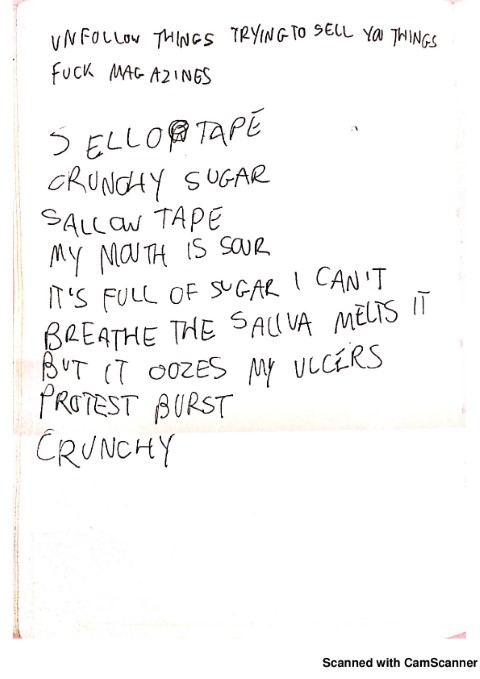 UNFOLLOW THINGS TRYING TO SELL YOU THINGS
FUCK MAGAZINES
SELLOTAPE
CRUNCHY SUGAR
SALLOW TAPE
MY MOUTH IS SOUR
IT'S FULL OF SUGAR I CAN'T
BREATHE THE SALIVA MELTS IT
BUT IT OOZES MY ULCERS
PROTEST BURST
CRUNCHY
Scanned with CamScanner